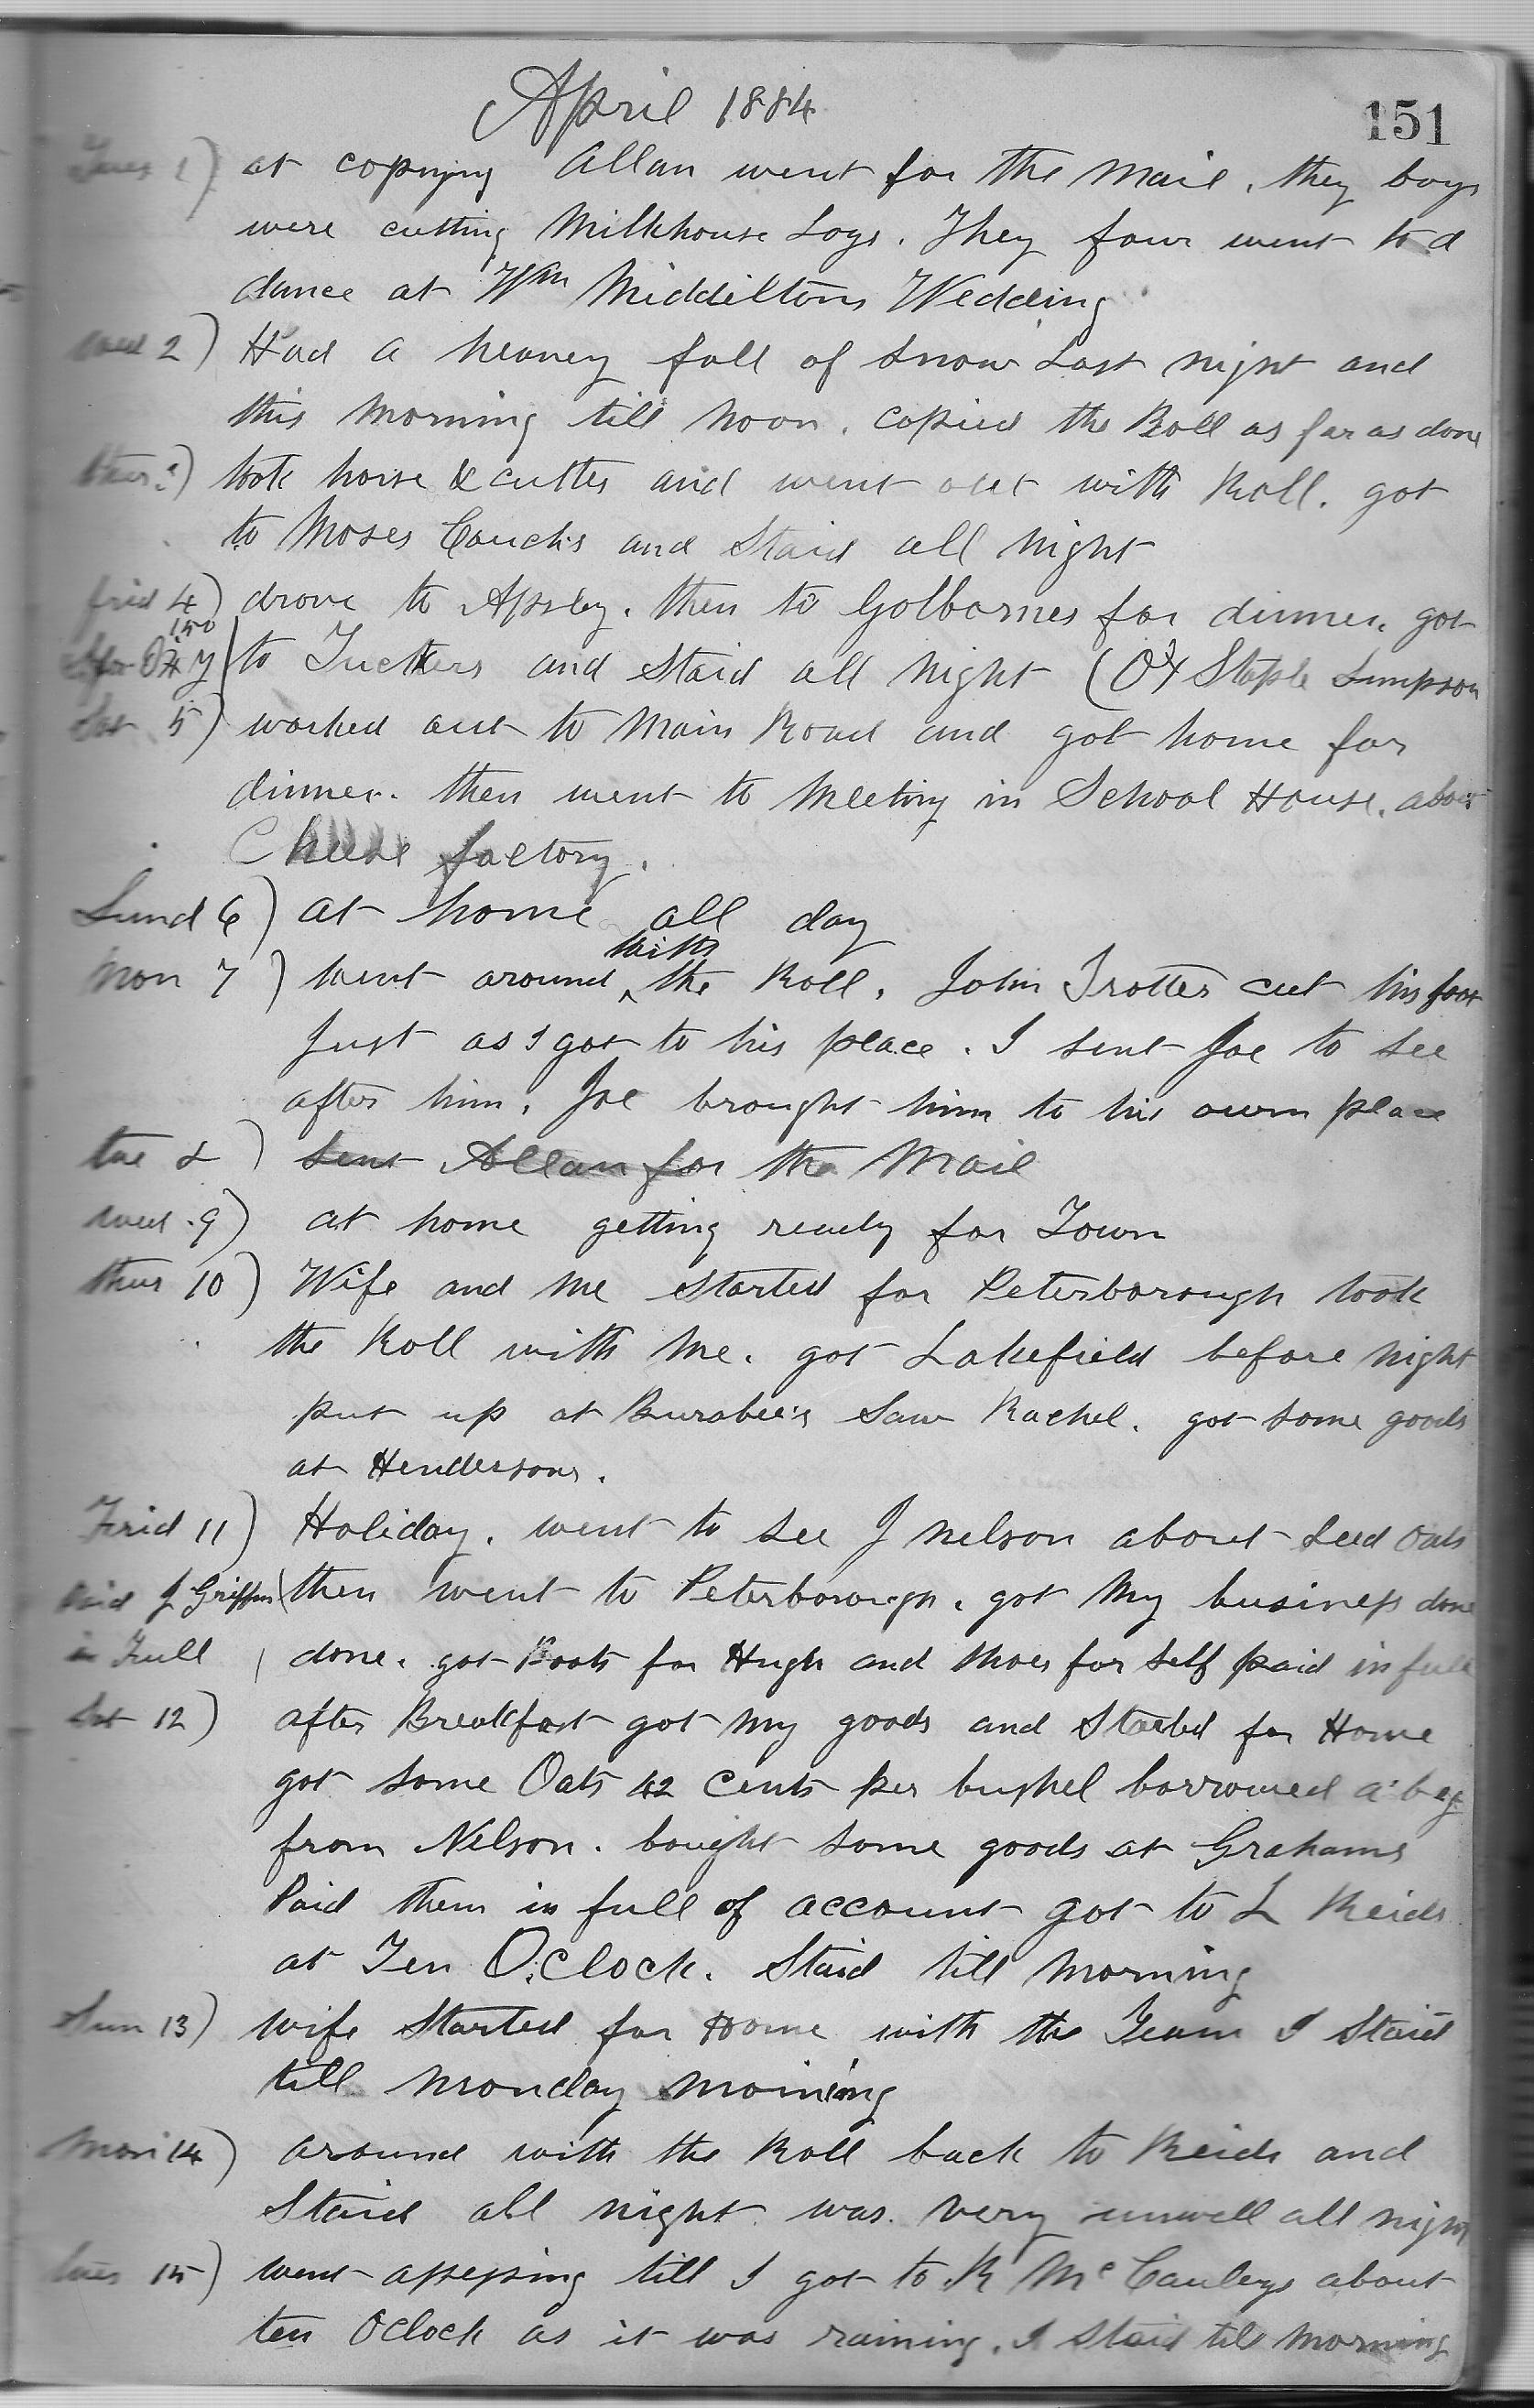 April 1884
151
Tues 1) at copying Allan went for the Mail. they boys
were cutting Milkhouse Logs. They four went to a
dance at Wm Middiltons Wedding
wed 2) Had a heavey fall of Snow Last night and
this Morning till Noon. copied the Roll as far as done
thur 3) took horse & cutter and went out with Roll. got
to Moses Couchs and Staid all Night
frid 4) drove to Apsley. then to Golbornes for dinner. got
1.50
to Tuckers and Staid all Night (O Y Staple Simpson
Sat 5) worked out to Main Road and got home for
dinner. then went to Meeting in School House. about
Cheese factory.
Sund 6) at home all day
with
Mon 7) Went around ^ the Roll. John Trotter cut his foot
Just as I got to his place. I sent Joe to see
after him. Joe brought him to his own place
tue 8) Sent Allan for the Mail
wed. 9) at home getting ready for Town
thur 10) Wife and Me Started for Peterborough took
the Roll with Me. got Lakefield before Night
put up at Burabee's Saw Rachel. got some goods
at Hendersons.
Frid 11) Holiday. went to see J Nelson about Seed Oats
Paid J Griffin ( then went to Peterborough. got My business done
in Full ( done. got Boots for Hugh and Shoes for Self paid in full
Sat 12) after Breakfast got My goods and Started for Home
got some Oats 42 Cents per bushel borrowed a bag
from Nelson. bought some goods at Grahams
Paid them in full of account got to L Reids
at Ten O,Clock. Staid till Morning
Sun 13) Wife Started for Home with the Team I Staid
till Monday Morning
Mon 14) around with the Roll back to Reids and
Staid all night was very unwell all night
tues 15) Went assessing till I got to R McCauleys about
ten OClock as it was raining. I Staid till Morning